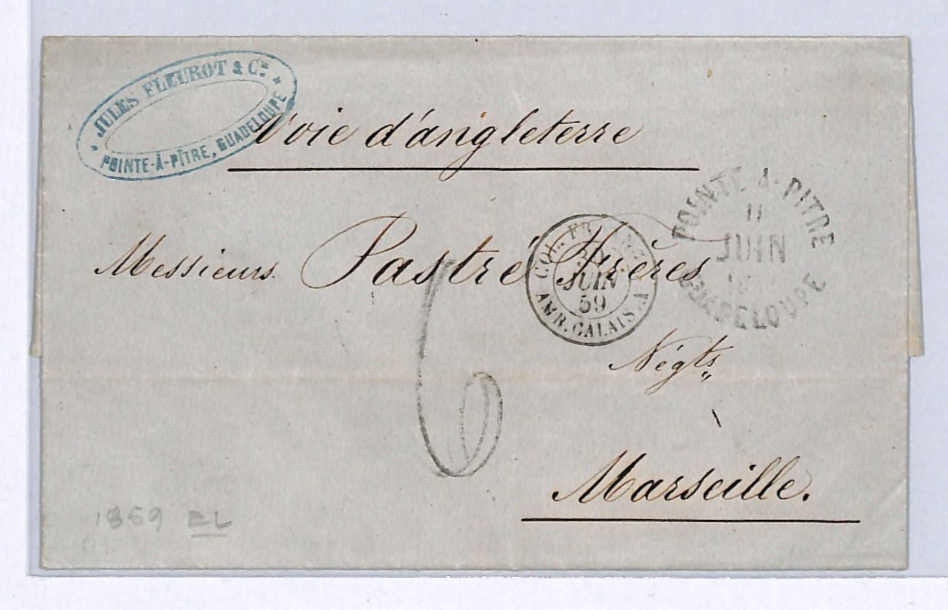 JULES FLEUROT & Cie
POINTE-À-PÎTRE, GUADELOUPE
Voie d'angleterre
POINTE A-PITRE
11
JUIN
GUADELOUPE
Messieurs Pastré Frères
COL. FR.
JUIN
59
AMB. CALAIS. A
6
Négts
Marseille.
1859